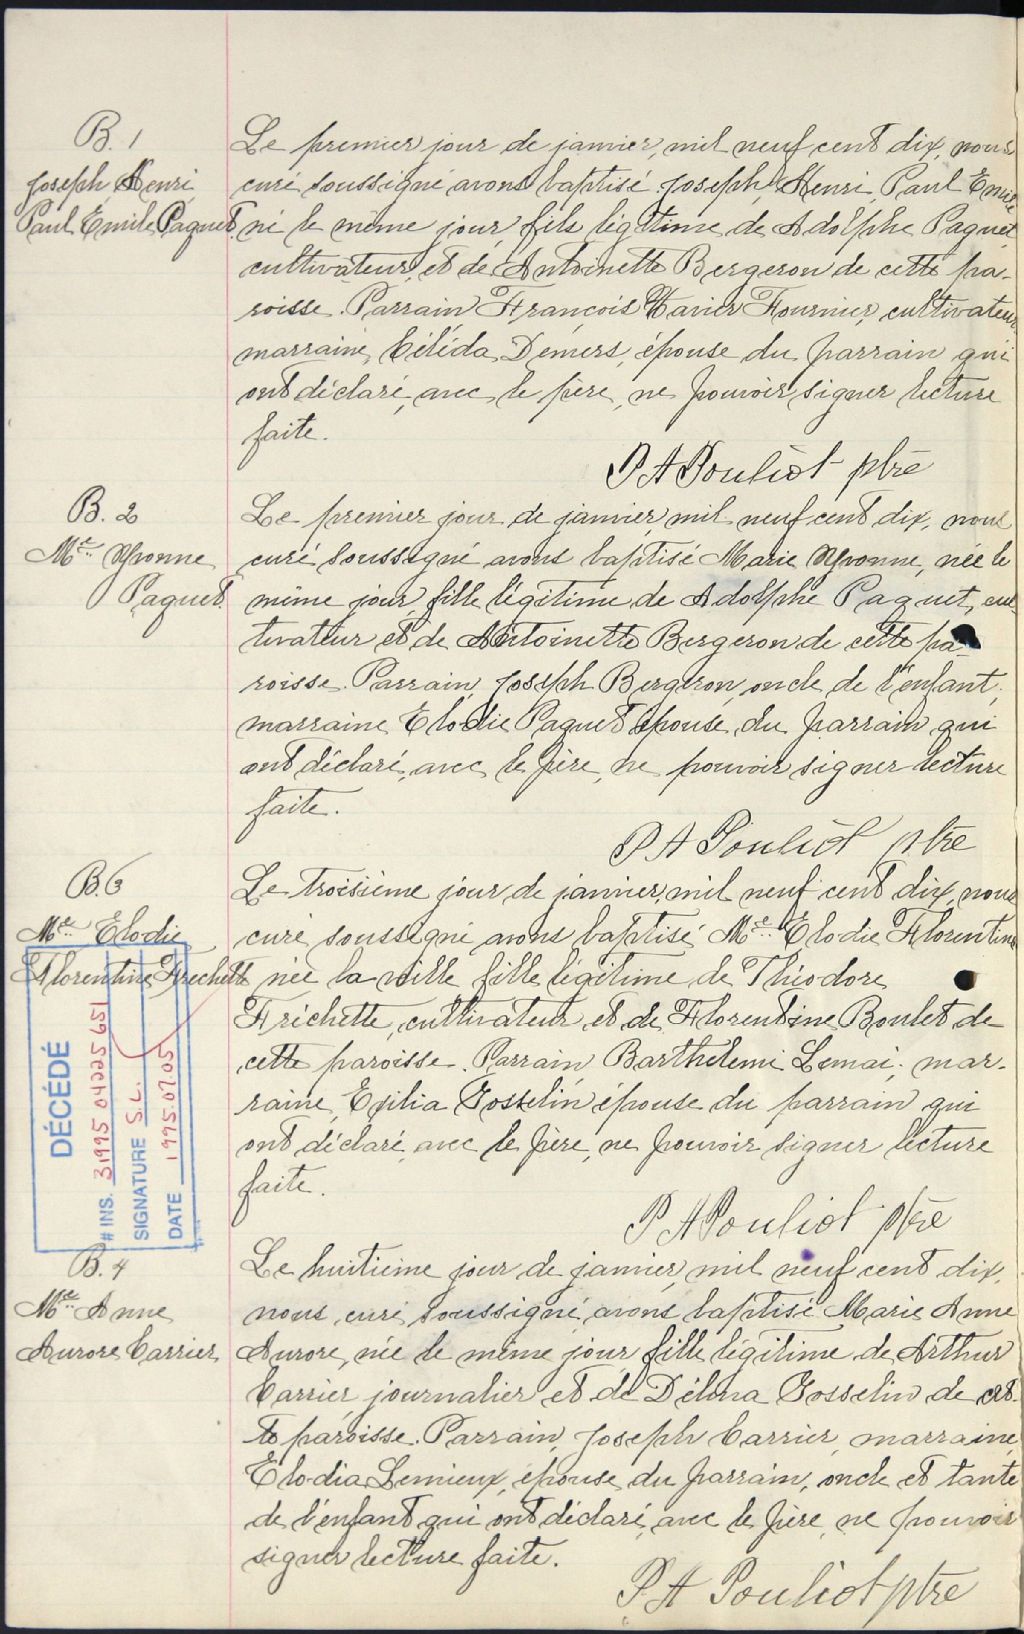 B. 1
Joseph Henri
Paul Émile Paquet
Le premier jour de janvier, mil neuf cent dix, nous
curé soussigné avons baptisé Joseph, Henri, Paul Emile
né le même jour, fils légitime de Adolphe Paquet,
cultivateur, et de Antoinette Bergeron de cette pa-
roisse. Parrain François Xavier Fournier, cultivateur,
marraine, Céléda Demers, épouse du parrain qui
ont déclaré, avec le père, ne pouvoir signer lecture
faite.
P A Pouliot ptre
B. 2
Mie Yvonne
Paquet
Le premier jour de janvier, mil neuf cent dix, nous
curé soussigné avons baptisé Marie Yvonne, née le
même jour, fille légitime de Adolphe Paquet, cul
tivateur et de Antoinette Bergeron de cette pa-
roisse. Parrain, Joseph Bergeron, oncle de l'enfant,
marraine Elodie Paquet épouse du parrain qui
ont déclaré, avec le père, ne pouvoir signer lecture
faite.
P A Pouliot ptre
B. 3
Mie Elodie
Florentine Frechette
Le troisième jour de janvier, mil neuf cent dix, nous
curé soussigné avons baptisé Mie Elodie Florentine
née la veille fille légitime de Théodore
Fréchette, cultivateur et de Florentine Boulet de
cette paroisse. Parrain Barthelemi Lemai, mar-
raine, Exilia Gosselin épouse du parrain qui
ont déclaré, avec le père, ne pouvoir signer lecture
faite.
P A Pouliot ptre
DÉCÉDÉ
# INS. 31995 04225 651
SIGNATURE S.L.
DATE 1995.07.05
B. 4
Mie Anne
Aurore Carrier
Le huitième jour de janvier, mil neuf cent dix,
nous, curé soussigné, avons baptisé Marie Anne
Aurore, née le même jour, fille légitime de Arthur
Carrier, journalier et de Délima Gosselin de cet-
te paroisse. Parrain, Joseph Carrier, marraine,
Elodia Lemieux, épouse du parrain, oncle et tante
de l'enfant qui ont déclaré, avec le père, ne pouvoir
signer lecture faite.
P. A Pouliot ptre